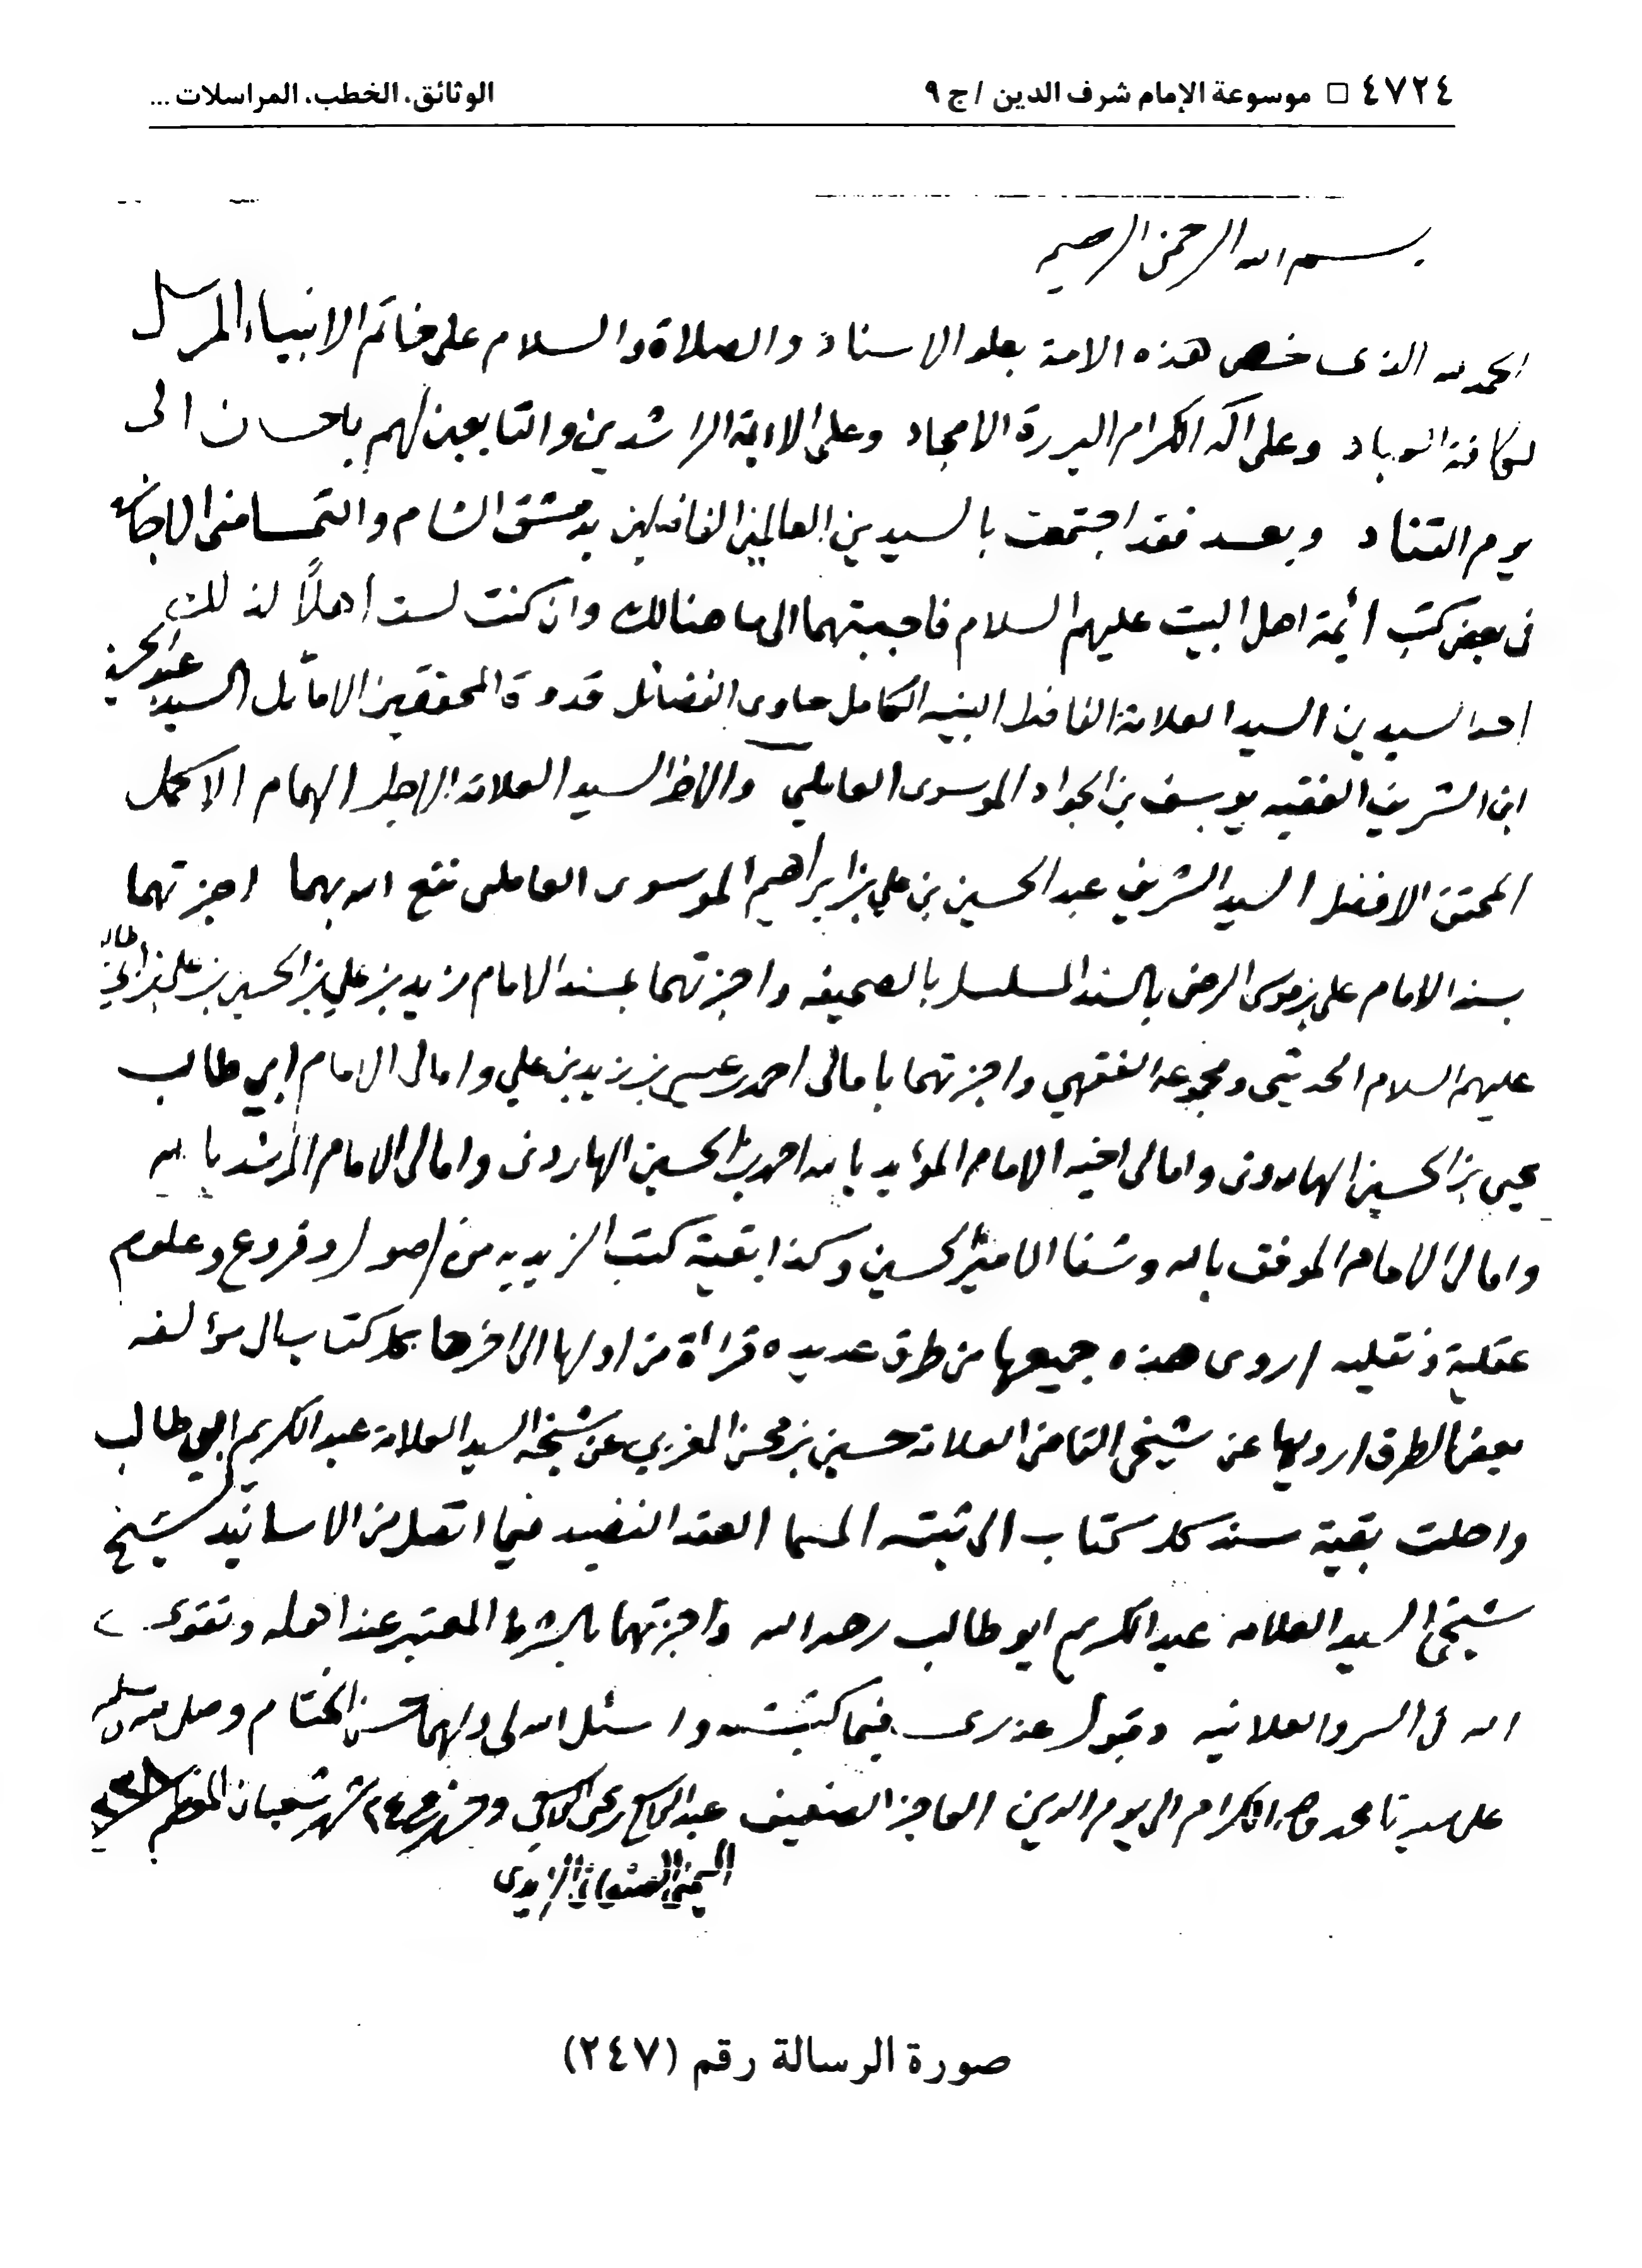 ٤٧٢٤ □ موسوعة الإمام شرف الدين / ج ٩
الوثائق، الخطب، المراسلات ...
بسم الله الرحمن الرحيم
الحمد لله الذي خص هذه الامة بعلو الاسناد والصلاة والسلام على خاتم الانبياء المرسل
لكافة العباد وعلى آله الكرام البررة الامجاد وعلى الايمة الراشدين والتابعين لهم باحسان الى
يوم التناد وبعد فقد اجتمعت بالسيدين العالمين الفاضلين بدمشق الشام والتمسا منى الاجازه
فى بعض كتب ائمة اهل البيت عليهم السلام فاجبتهما الى ما هنالك وان كنت لست اهلاً لذلك
احد السيدين السيد العلامة الفاضل النبيه الكامل حاوى الفضائل قدوة المحققين الاماثل السيد عبد الحسين
ابن الشريف الفقيه يوسف بن الجواد الموسوى العاملي والاخر السيد العلامة الاجل الهمام الاكمل
المحقق الافضل السيد الشريف عبد الحسين بن علي بن ابراهيم الموسوى العاملى نفع الله بهما اجزتهما
بسند الامام على بن موسى الرضى بالسند المسلسل بالصحيفه واجزتهما بمسند الامام زيد بن علي بن الحسين بن على بن ابي طالب
عليهم السلام الحديثى ومجموعه الفقهي واجزتهما بامالى احمد بن عيسى بن زيد بن علي وامالى الامام ابي طالب
يحيى بن الحسين الهارونى وامالى اخيه الامام المؤيد بالله احمد بن الحسين الهارونى وامالى الامام المرشد بالله
وامالى الامام الموفق بالله وشفا الامير الحسين وكذا بقية كتب الزيديه من اصول وفروع وعلوم
عقلية ونقليه اروى هذه جميعها من طرق عديده قراأة من اولها الى اخرها بكل كتاب الى مؤلفه
بعض الطرق ارويها عن شيخى القاضى العلامة حسين بن محسن المغربي عن شيخه السيد العلامة عبد الكريم ابي طالب
واحلت بقية سند كل كتاب الى ثبته المسما العقد النضيد فيما اتصل من الاسانيد لشيخ
شيخى السيد العلامه عبد الكريم ابو طالب رحمه الله واجزتهما بالشرط المعتبر عند اهله وتقوى
الله فى السر والعلانيه وقبول عذرى فيما كتبته واسئل الله لى ولهما حسن الختام وصلى الله وسلم
على سيدنا محمد وآله الكرام الى يوم الدين العاجز الضعيف عبد الواسع بن يحيى الواسعي ٢٤ شهر شعبان المعظم ١٣٣٨
اليمنى الصنعانى الزيدى
صورة الرسالة رقم (٢٤٧)